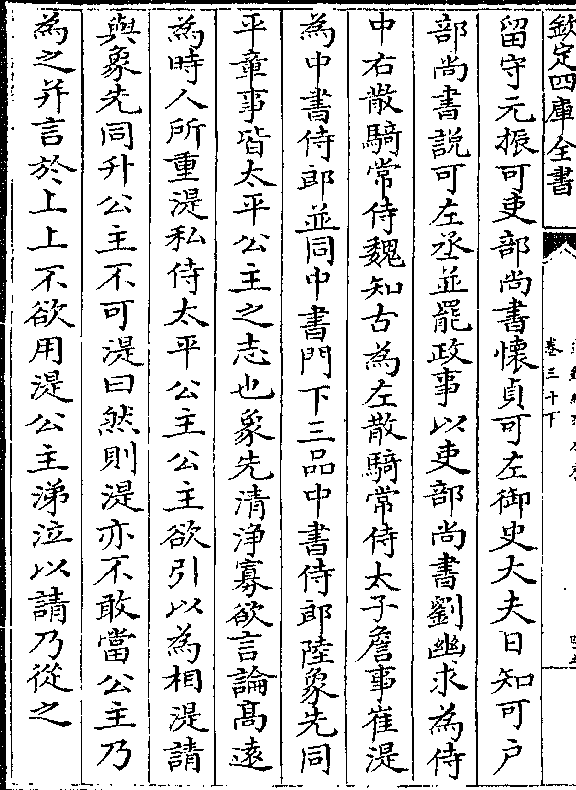 欽定四庫全書
卷三十下
留守元振可吏部尚書懷貞可左御史大夫日知可戶
部尚書說可左丞並罷政事以吏部尚書劉幽求為侍
中右散騎常侍魏知古為左散騎常侍太子詹事崔湜
為中書侍郎並同中書門下三品中書侍郎陸象先同
平章事皆太平公主之志也象先清浄寡欲言論髙逺
為時人所重湜私侍太平公主公主欲引以為相湜請
與象先同升公主不可湜曰然則湜亦不敢當公主乃
為之并言於上上不欲用湜公主涕泣以請乃從之